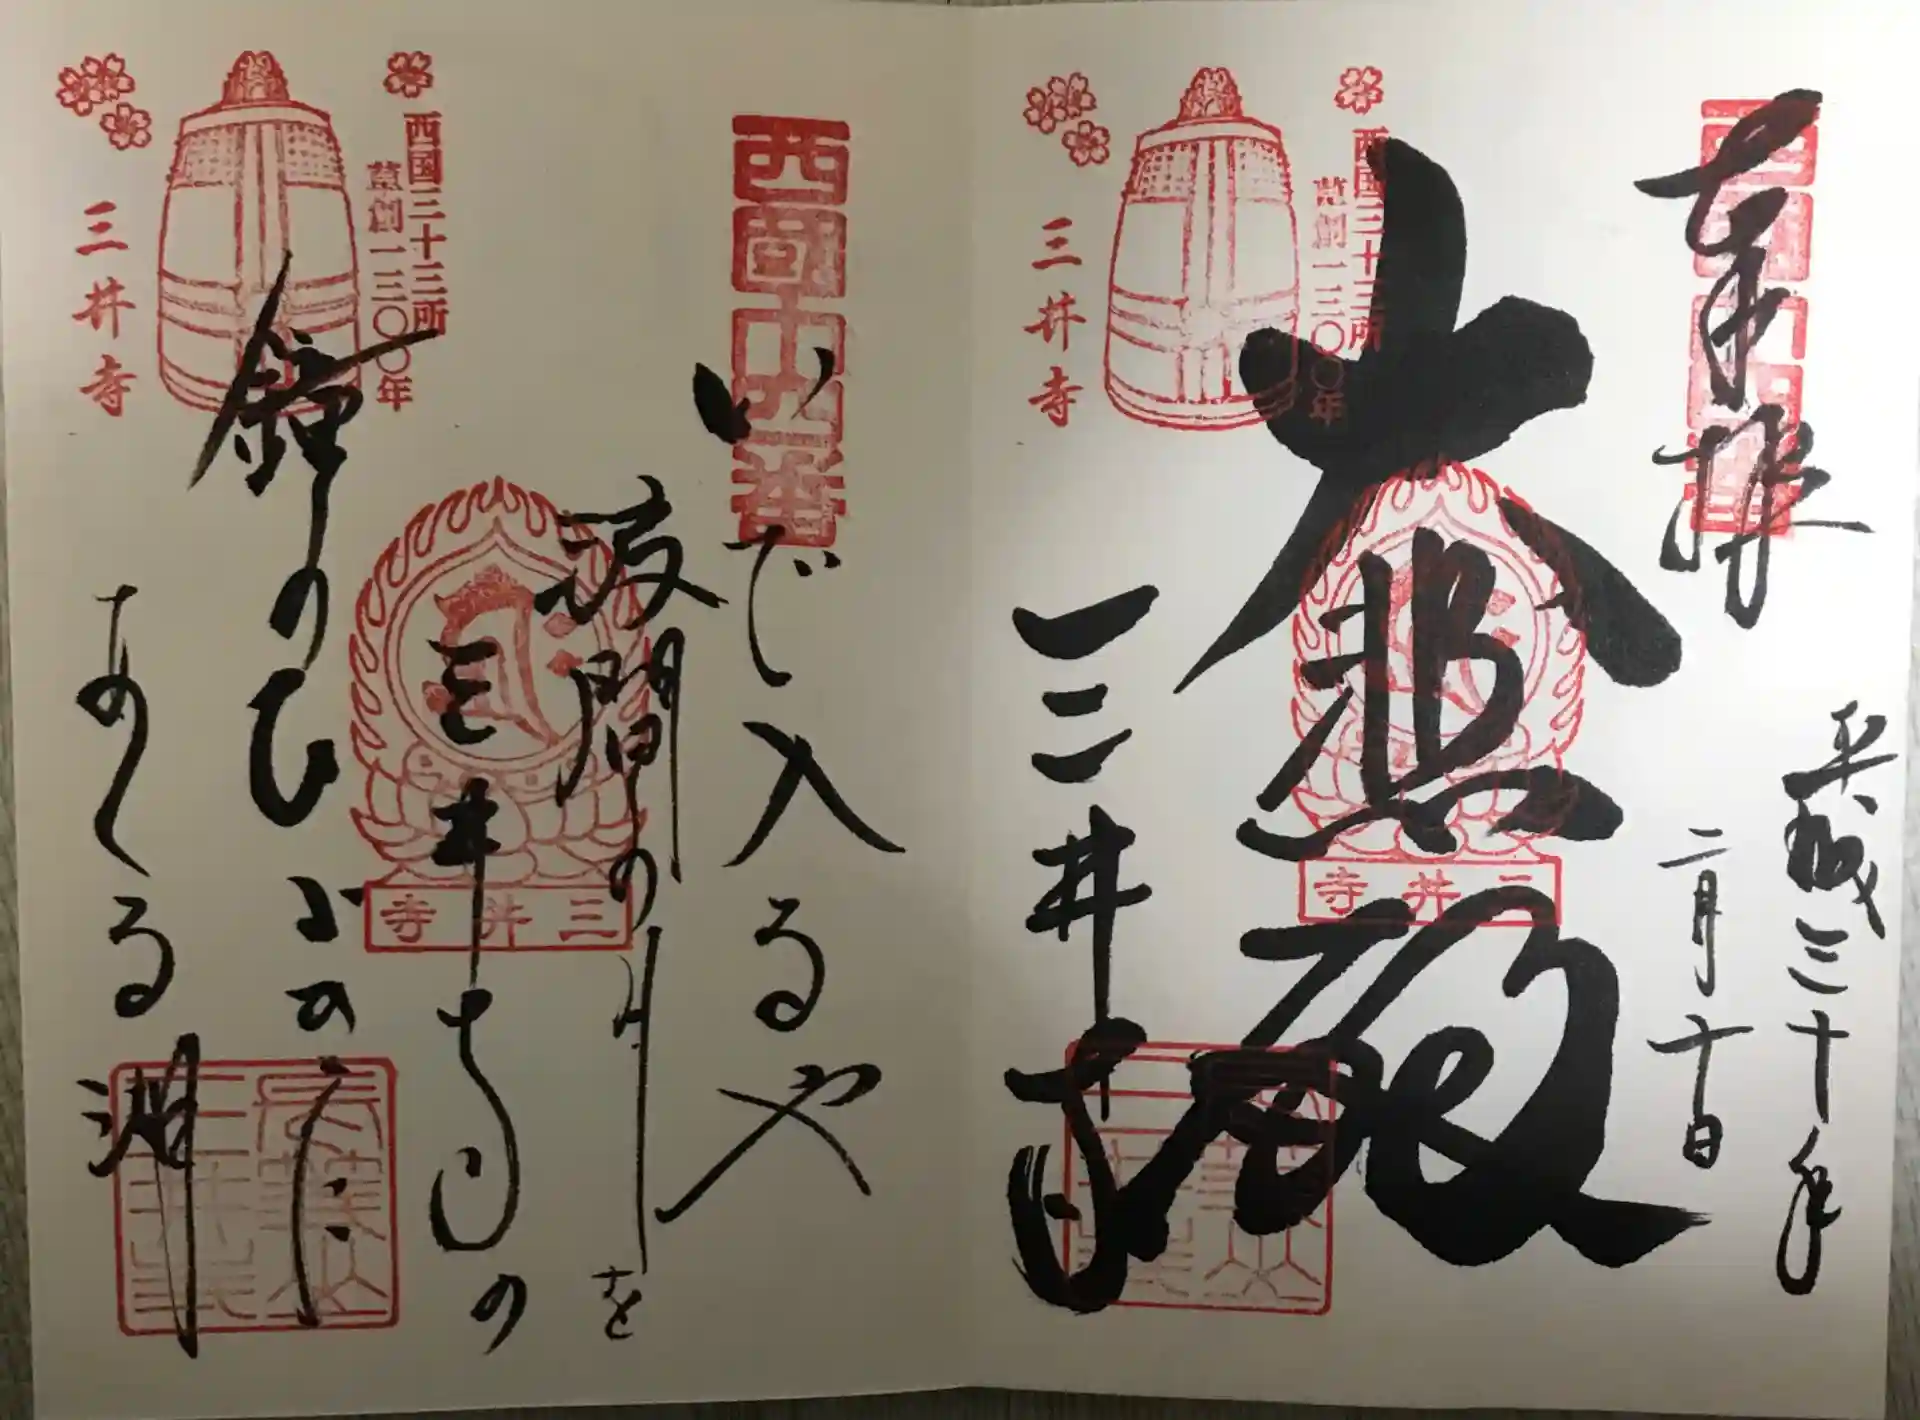 奉拝
平成三十年
二月十日
大悲殿
三井寺
西国三十三所
草創一三〇〇年
三井寺
三井寺
西國十四番
いで入るや
波間の月を
三井寺の
鐘のひびきに
あくる湖
西国三十三所
草創一三〇〇年
三井寺
三井寺